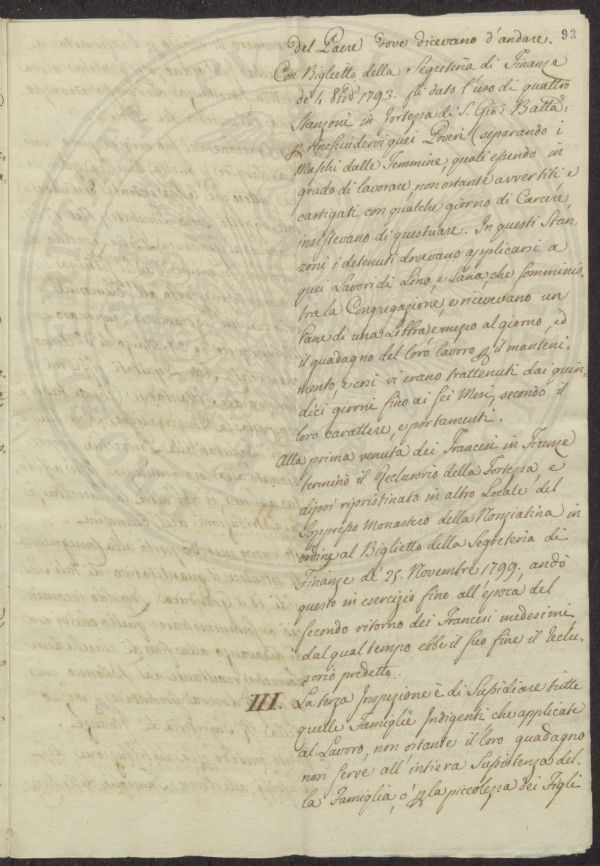 93
del Paese dove dicevano d'andare.
Con Biglietto della Segreteria di Finanze
de' 4. 8bre 1793. fù dato l'uso di quattro
Stanzoni in Fortezza di S. Gio: Batta,
p Rinchiudervi quei Poveri (separando i
Maschi dalle Femmine, quali essendo in
grado di lavorare, non ostante avvertiti e
castigati con qualche giorno di Carcere,
insistevano di questuare. In questi Stan-
zoni i detenuti dovevano applicarsi a
quei Lavori di Lino, e Lana, che somminis-
tra la Congregazione, e ricevevano un
Pane di una Libbra, e mezzo al giorno, ed
il guadagno del loro lavoro p il manteni-
mento, e così vi erano trattenuti dai quin-
dici giorni fino ai sei Mesi, secondo il
loro carattere, e portamenti.
Alla prima venuta dei Francesi in Firenze
terminò il Reclusorio della Fortezza, e
dipoi ripristinato in altro Locale del
Soppresso Monastero della Nonziatina in
ordine al Biglietto della Segreteria di
Finanze de' 25. Novembre 1799. andò
questo in esercizio fino all'epoca del
secondo ritorno dei Francesi medesimi
dal qual tempo ebbe il suo fine il Reclu-
sorio predetto.
III. La terza Inspezione è di Sussidiare tutte
quelle Famiglie Indigenti che applicate
al Lavoro, non ostante il loro guadagno
non serve all'intiera Sussistenza del-
la Famiglia, ó p la piccolezza dei Figli